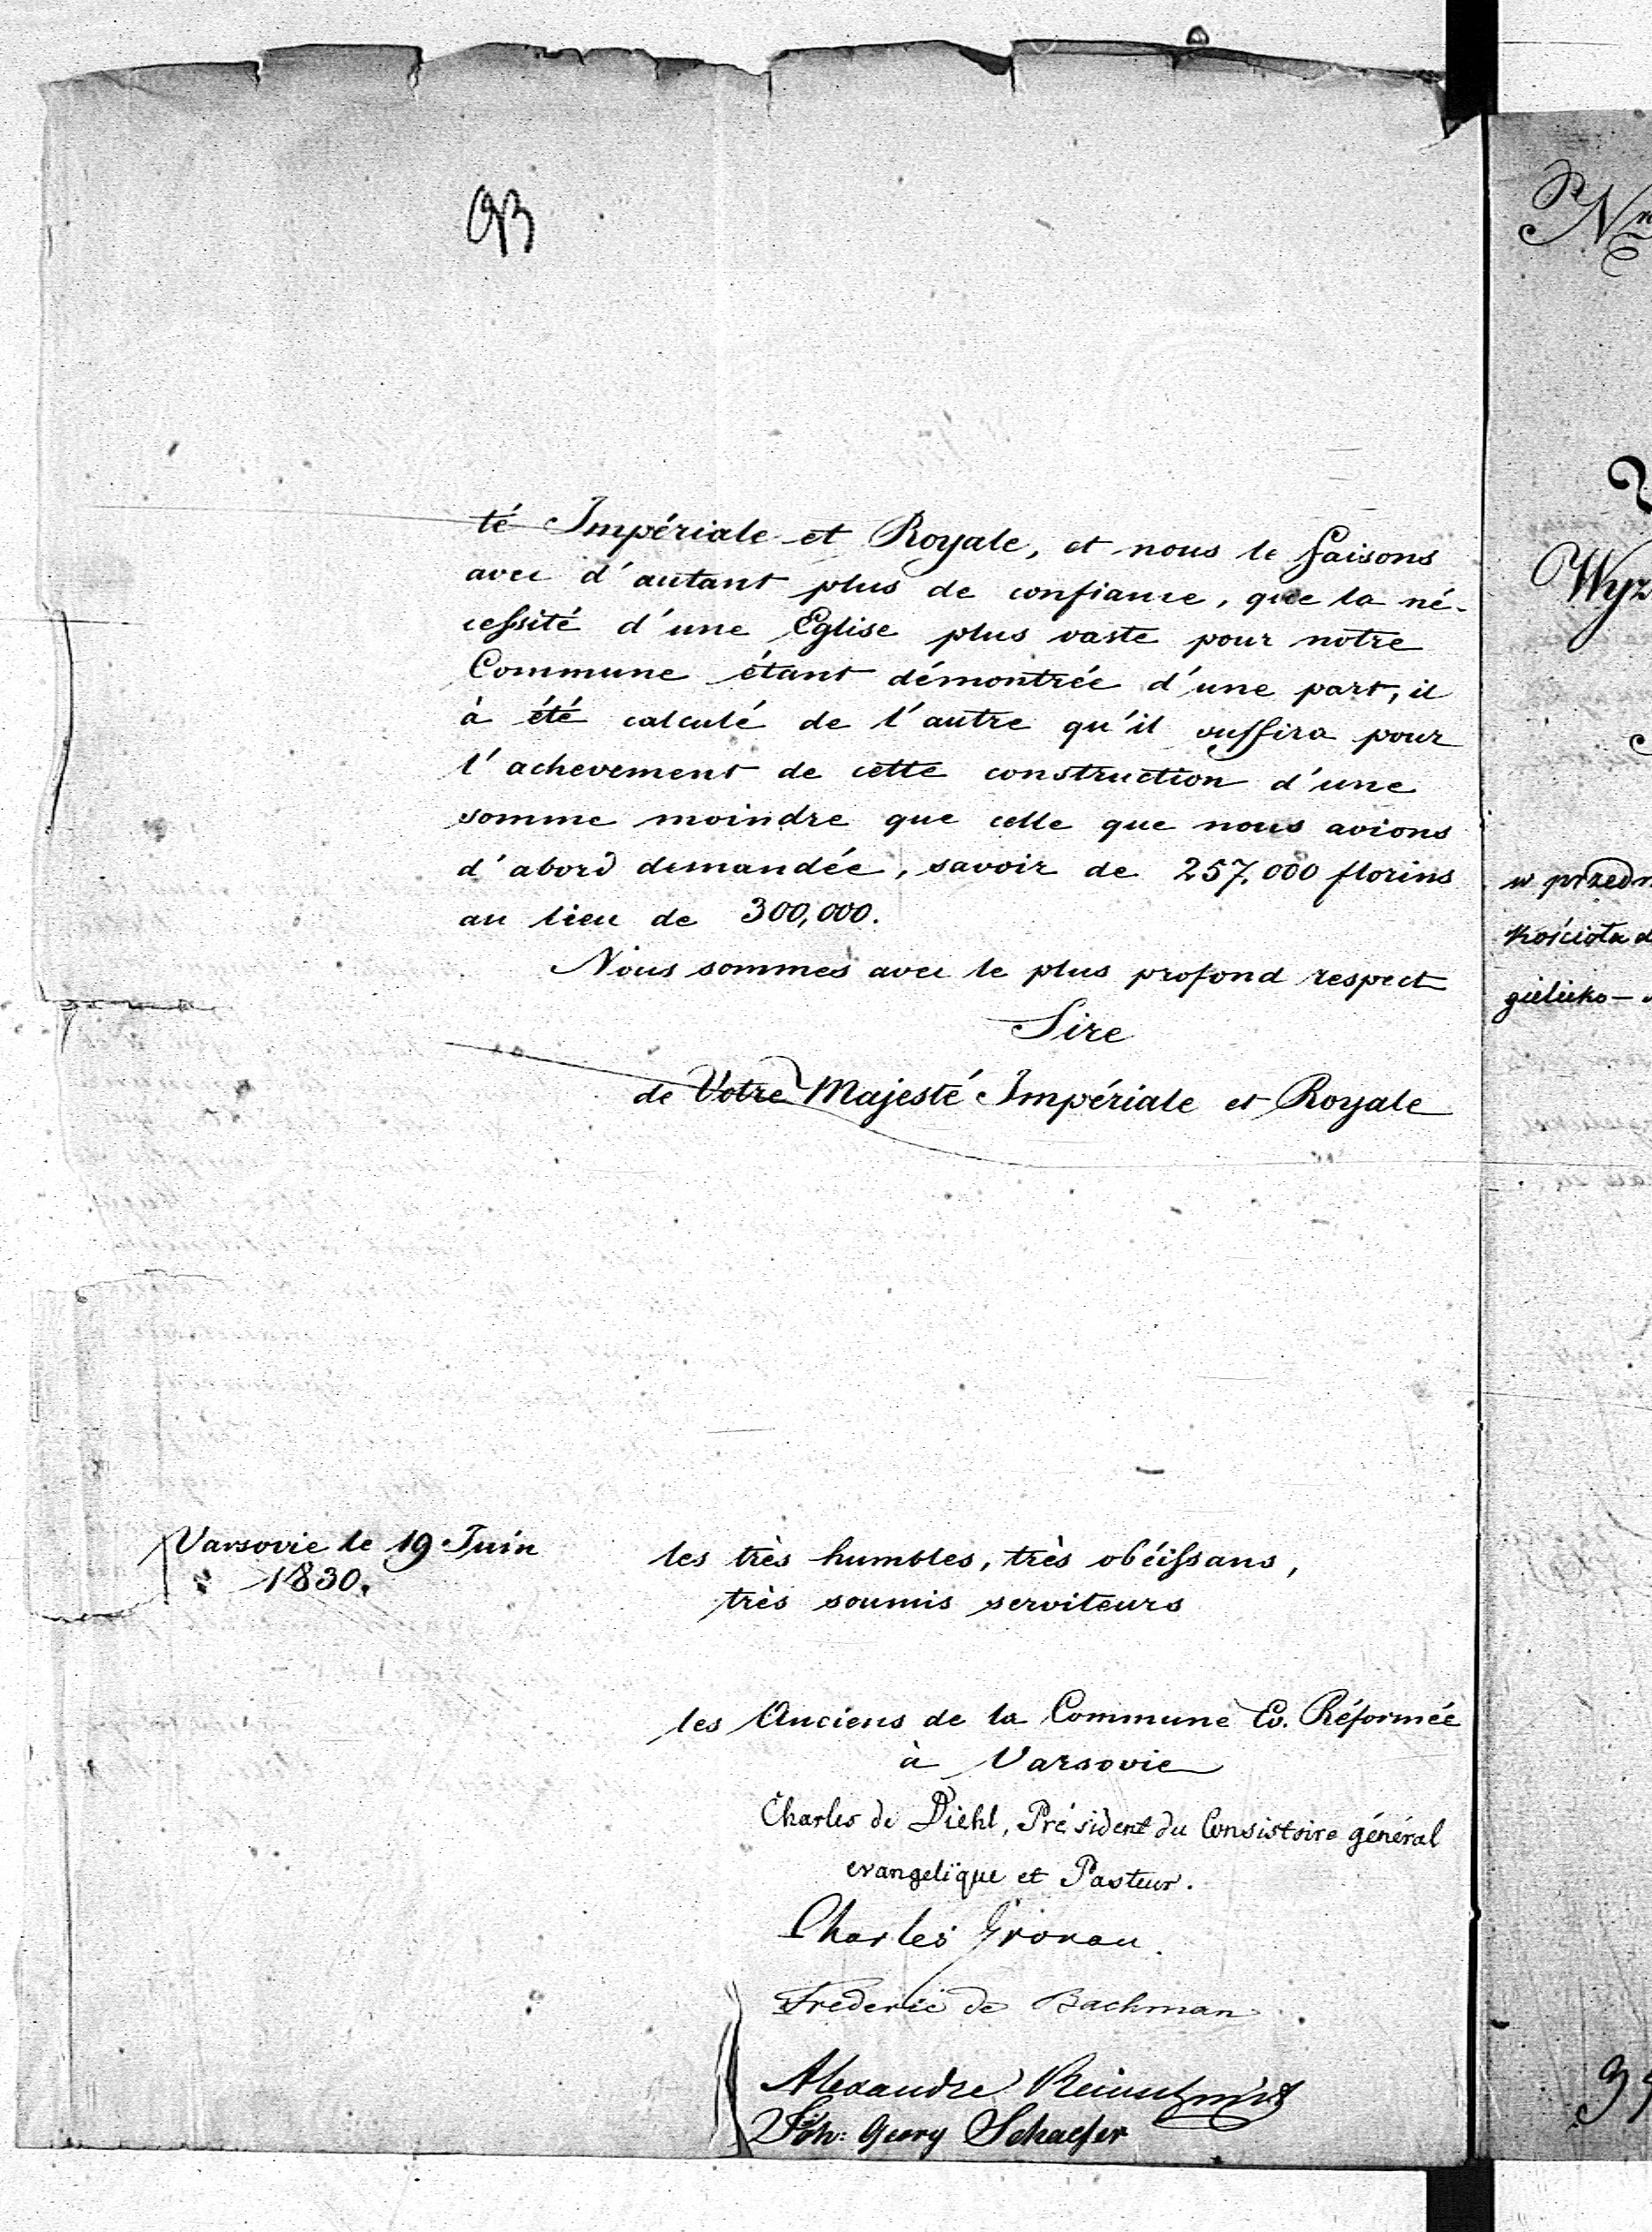 93
té Impériale et Royale, et nous le faisons
avec d'autant plus de confiance, que la né-
cessité d'une Eglise plus vaste pour notre
Commune étant démontrée d'une part, il
à été calculé de l'autre qu'il suffira pour
l'achevement de cette construction d'une
somme moindre que celle que nous avions
d'abord demandée, savoir de 257,000 florins
au lieu de 300,000.
Nous sommes avec le plus profond respect
Sire
de Votre Majesté Impériale et Royale
Varsovie le 19 Juin
1830.
les très humbles, très obéissans,
très soumis serviteurs
les Anciens de la Commune Ev. Réformée
à Varsovie
Charles de Diehl, Président du Consistoire général
evangelique et Pasteur.
Charles Gronau.
Frederic de Bachman
Alexandre Reinschmidt
Joh: Georg Schaefer
Nr
Wyz
w przedm
Kościoła d
gielicko-